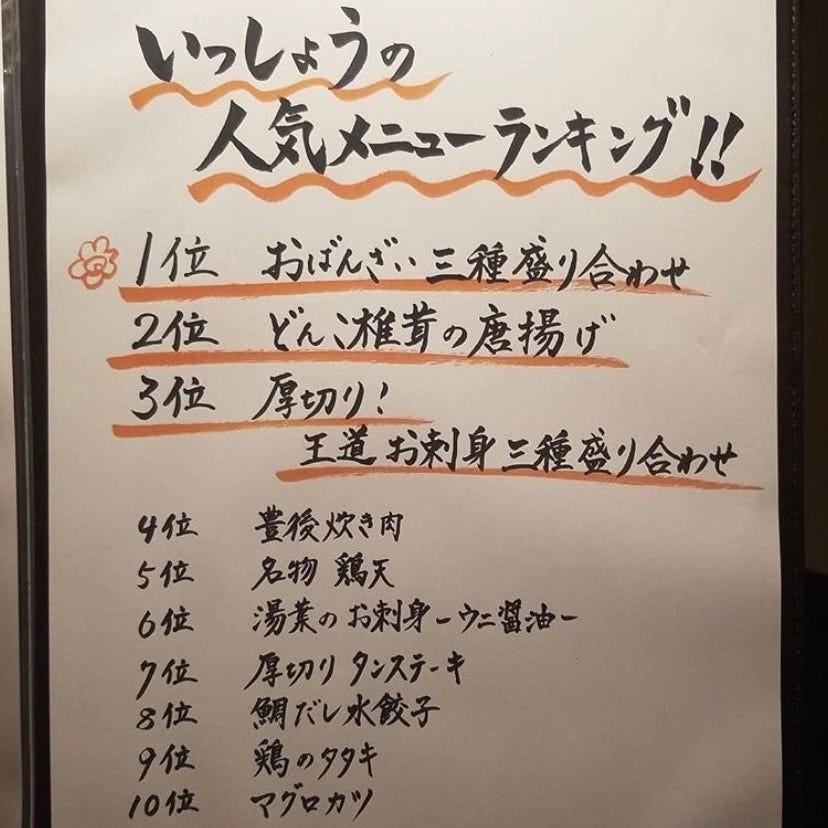 いっしょうの
人気メニューランキング!!
1位 おばんざい三種盛り合わせ
2位 どんこ椎茸の唐揚げ
3位 厚切り!
王道 お刺身三種盛り合わせ
4位 豊後炊き肉
5位 名物 鶏天
6位 湯葉のお刺身-ウニ醤油-
7位 厚切りタンステーキ
8位 鯛だし水餃子
9位 鶏のタタキ
10位 マグロカツ